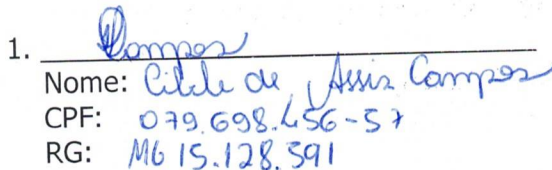 1. Campos
Nome: Cibele de Assis Campos
CPF: 079.698.456-57
RG: MG 15.128.591